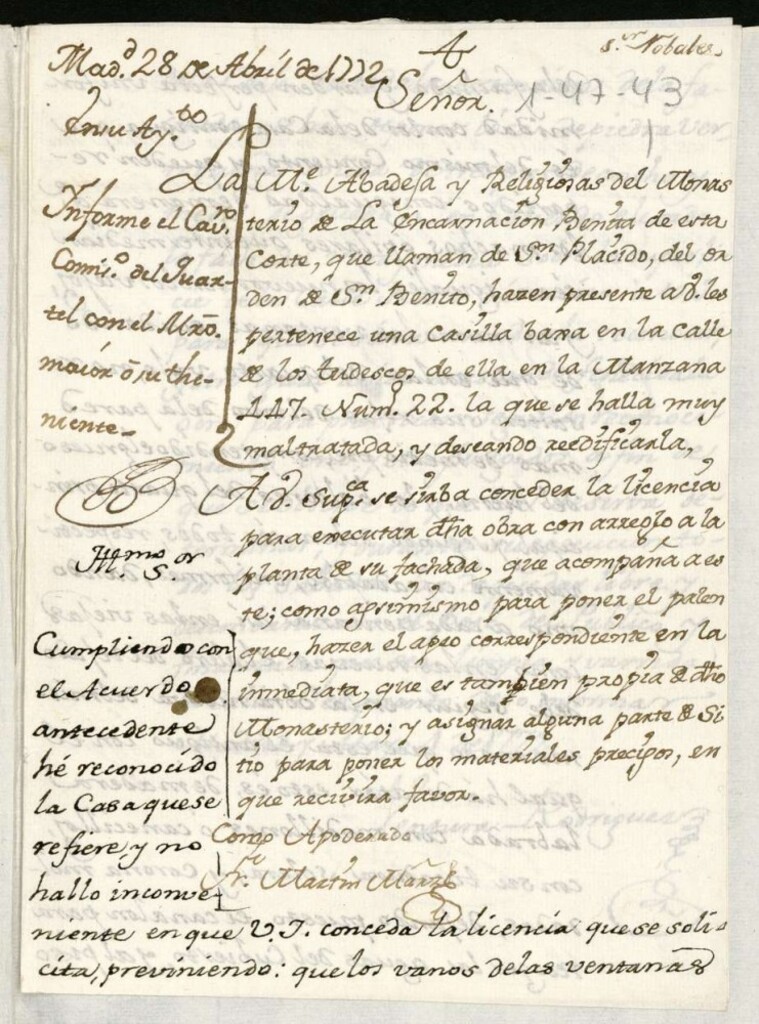 Mad.d 28 de Abril de 1772
s.or Nobales
Señor.
1-47-43
En su Ay.to
Informe el Cav.ro
Comis.o del Quar-
tel con el Mro.
maior ó su the-
niente
La M.e Abadesa y Religiosas del Monas
terio de La Encarnacion Benita de esta
Corte, que llaman de S.n Placido, del or
den de S.n Benito, hazen presente a V. les
pertenece una Casilla baxa en la Calle
de los tudescos de ella en la Manzana
447. Num.o 22. la que se halla muy
maltratada, y deseando reedificarla,
A V. Sup.ca se sirba conceder la licencia
para executar dha obra con arreglo a la
planta de su fachada, que acompaña a es
te; como assimismo para poner el palen
que, hazer el apeo correspondiente en la
inmediata, que es tampien propia de dho
Monasterio; y asignar alguna parte de Si
tio para poner los materiales precisos, en
que recivira favor.
Como Apoderado
Martin
Ill.mo S.or
Cumpliendo con
el Acuerdo
antecedente
hé reconocido
la Casa que se
refiere, y no
hallo inconve-
niente en que V.I. conceda la licencia que se soli-
cita, previniendo: que los vanos de las ventanas